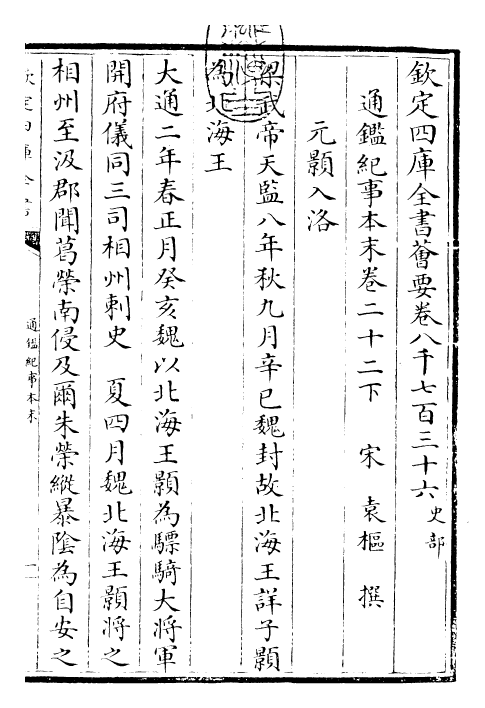 欽定四庫全書薈要卷八千七百三十六 史部
通鑑紀事本末卷二十二下 宋 袁樞 撰
元顥入洛
梁武帝天監八年秋九月辛巳魏封故北海王詳子顥
為北海王
大通二年春正月癸亥魏以北海王顥為驃騎大將軍
開府儀同三司相州刺史 夏四月魏北海王顥將之
相州至汲郡聞葛榮南侵及爾朱榮縱暴陰為自安之
欽定四庫全書
通鑑紀事本末